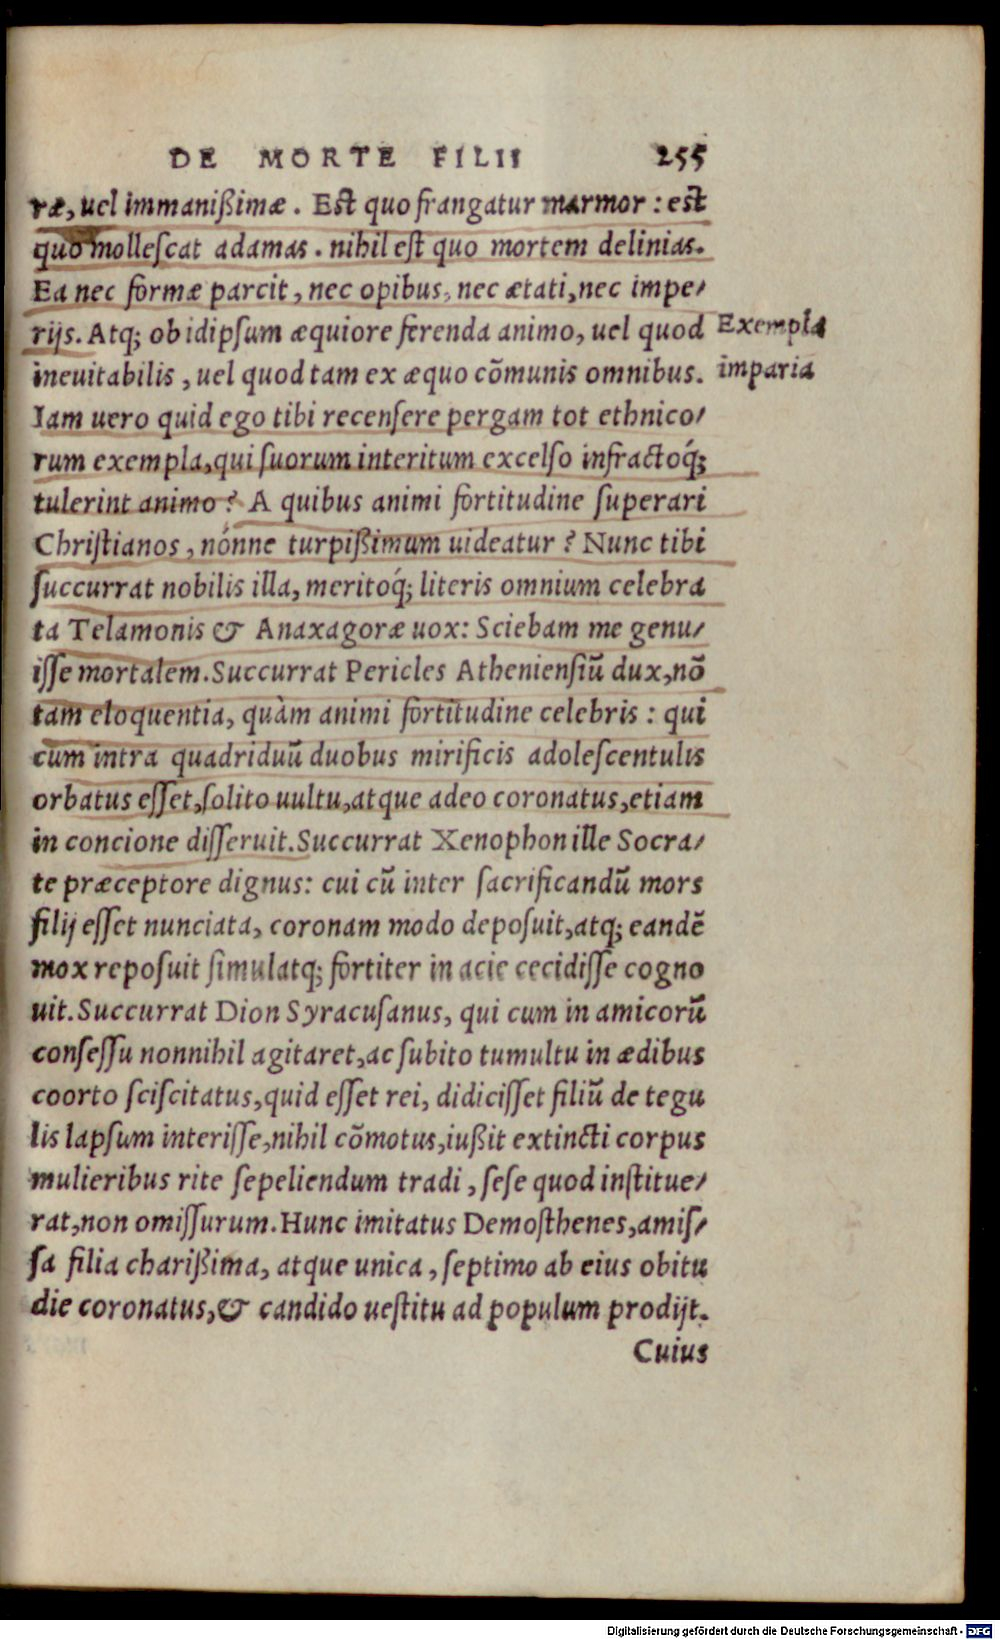 DE MORTE FILII 255
ræ, uel immanißimæ. Est quo frangatur marmor: est
quo mollescat adamas. nihil est quo mortem delinias.
Ea nec formæ parcit, nec opibus, nec ætati, nec impe/
rijs. Atq; ob idipsum æquiore ferenda animo, uel quod
Exempla
imparia
ineuitabilis, uel quod tam ex æquo cõmunis omnibus.
Iam uero quid ego tibi recensere pergam tot ethnico/
rum exempla, qui suorum interitum excelso infractoq́;
tulerint animo? A quibus animi fortitudine superari
Christianos, nónne turpißimum uideatur? Nunc tibi
succurrat nobilis illa, meritoq́; literis omnium celebra
ta Telamonis & Anaxagoræ uox: Sciebam me genu/
isse mortalem. Succurrat Pericles Atheniensiũ dux, nõ
tam eloquentia, quàm animi fortitudine celebris: qui
cum intra quadriduũ duobus mirificis adolescentulis
orbatus esset, solito uultu, atque adeo coronatus, etiam
in concione disseruit. Succurrat Xenophon ille Socra/
te præceptore dignus: cui cũ inter sacrificandũ mors
filij esset nunciata, coronam modo deposuit, atq; eandẽ
mox reposuit simulatq; fortiter in acie cecidisse cogno
uit. Succurrat Dion Syracusanus, qui cum in amicorũ
consessu nonnihil agitaret, ac subito tumultu in ædibus
coorto sciscitatus, quid esset rei, didicisset filiũ de tegu
lis lapsum interisse, nihil cõmotus, iußit extincti corpus
mulieribus rite sepeliendum tradi, sese quod institue/
rat, non omissurum. Hunc imitatus Demosthenes, amis/
sa filia charißima, atque unica, septimo ab eius obitu
die coronatus, & candido uestitu ad populum prodijt.
Cuius
Digitalisierung gefördert durch die Deutsche Forschungsgemeinschaft - DFG